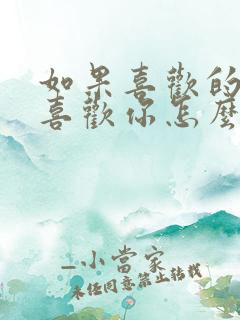 如果喜歡的
喜歡你怎麼
_小當家
未經同意禁止轉載